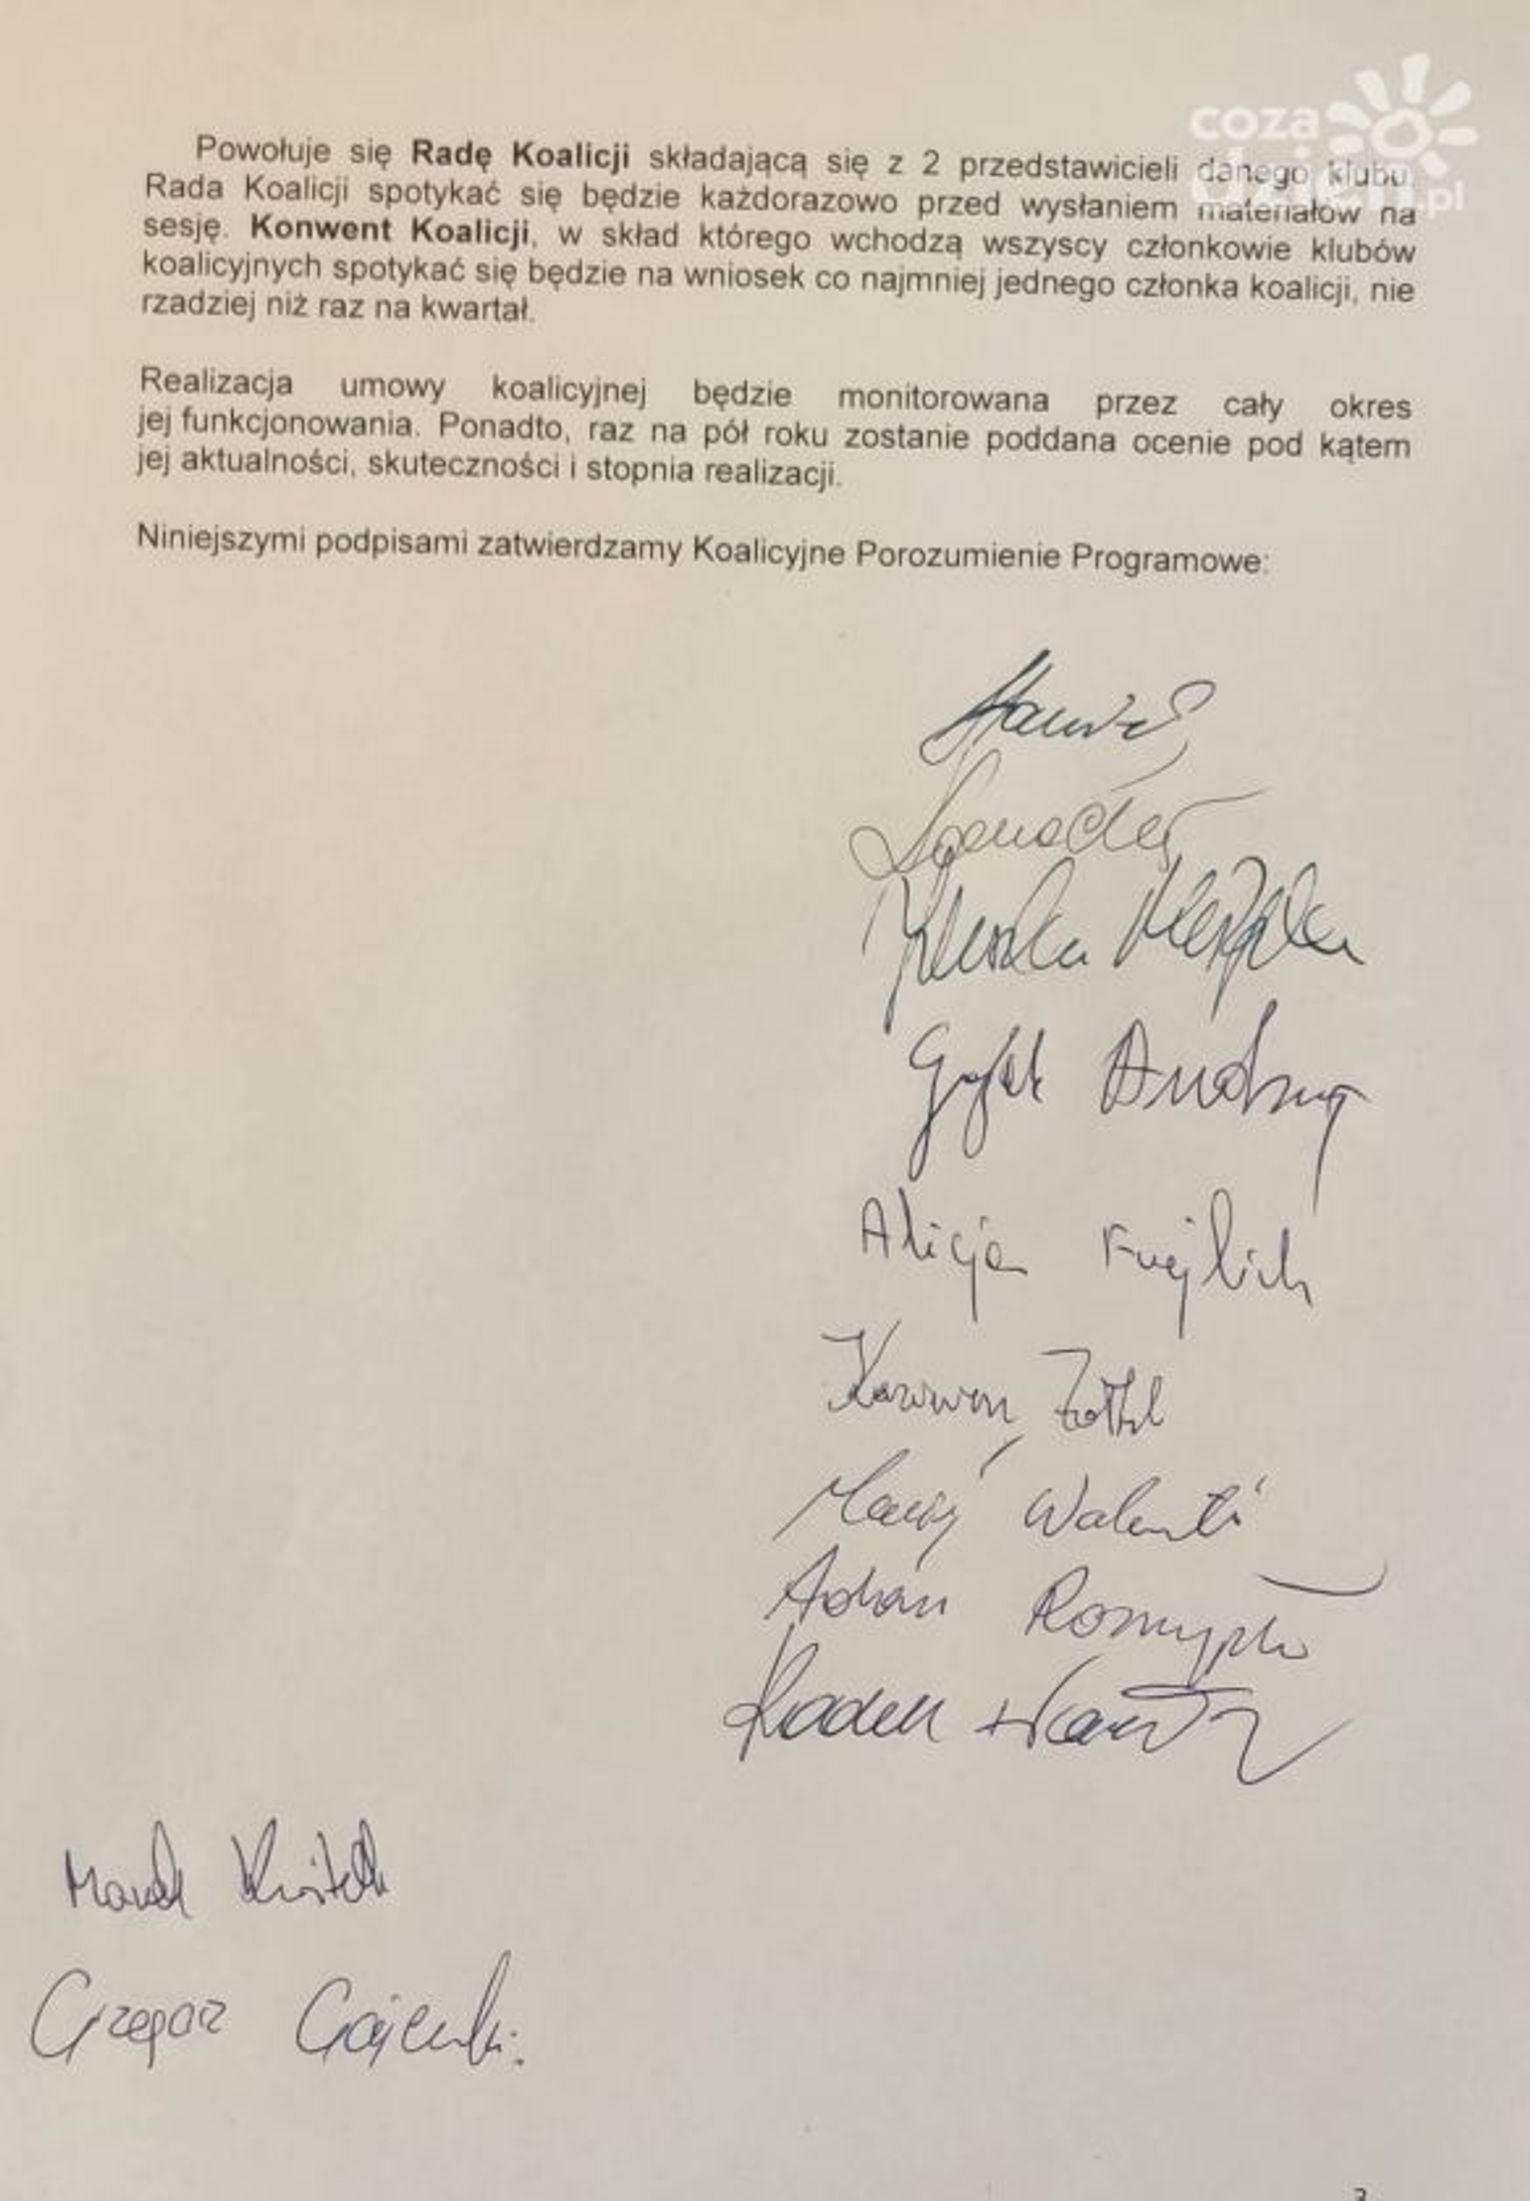 coza
dzien.pl
Powołuje się Radę Koalicji składającą się z 2 przedstawicieli danego klubu.
Rada Koalicji spotykać się będzie każdorazowo przed wysłaniem materiałów na
sesję. Konwent Koalicji, w skład którego wchodzą wszyscy członkowie klubów
koalicyjnych spotykać się będzie na wniosek co najmniej jednego członka koalicji, nie
rzadziej niż raz na kwartał.
Realizacja umowy koalicyjnej będzie monitorowana przez cały okres
jej funkcjonowania. Ponadto, raz na pół roku zostanie poddana ocenie pod kątem
jej aktualności, skuteczności i stopnia realizacji.
Niniejszymi podpisami zatwierdzamy Koalicyjne Porozumienie Programowe:
Alicja
Maciej
Adrian
Radek
Marek
Grzegorz
3